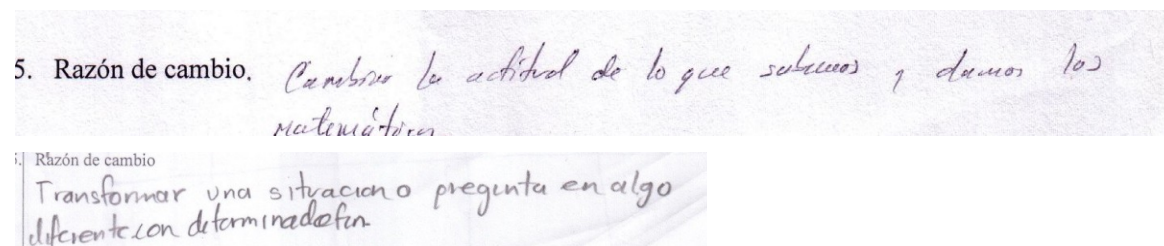 5. Razón de cambio. Cambiar la actitud de lo que sabemos y damos los
matemáticos
5. Razón de cambio
Transformar una situacion o pregunta en algo
diferente con determinado fin